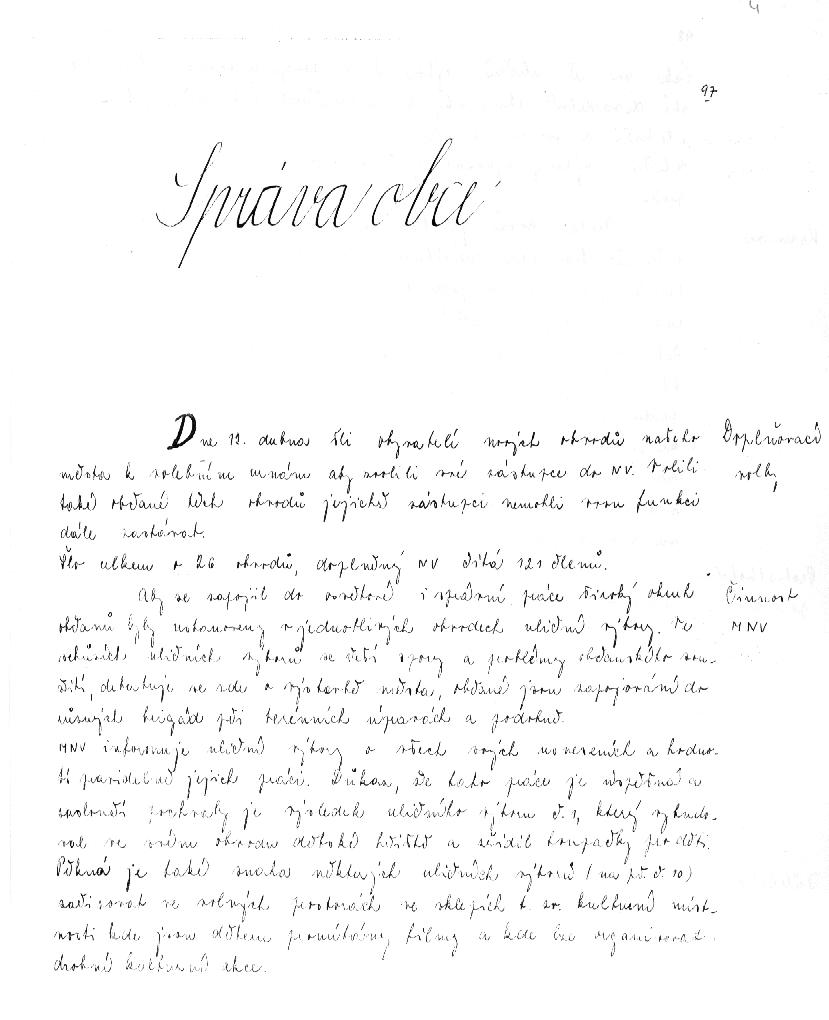 4
97
Správa obce
Dne 12. dubna šli obyvatelí nových obvodů našeho
města k volebním urnám aby zvolili své zástupce do NV. Volili
také občané těch obvodů jejichž zástupci nemohli svou funkci
dále zastávat.
Šlo celkem o 26 obvodů, doplněný NV čítá 121 členů.
Aby se zapojil do osvětové i správní práce široký okruh
občanů byly ustanoveny v jednotlivých obvodech uliční výbory. Na
schůzích uličních výborů se řeší spory a problémy občanského sou-
žití, debatuje se zde o výstavbě města, občané jsou zapojováni do
různých brigád při terénních úpravách a podobně.
MNV informuje uliční výbory o všech svých usneseních a hodno-
tí pravidelně jejich práci. Důkaz, že tato práce je úspěšná a
zaslouží pochvaly je výsledek uličního výboru č. 1, který vybudo-
val ve svém obvodu dětské hřiště a zřídil houpačky pro děti.
Pěkná je také snaha některých uličních výborů (na př. č. 10)
zařizovat ve volných prostorách ve sklepích t. zv. kulturní míst-
nosti kde jsou dětem promítány filmy a kde lze organisovat
drobné kulturní akce.
Doplňovací
volby
Činnost
MNV